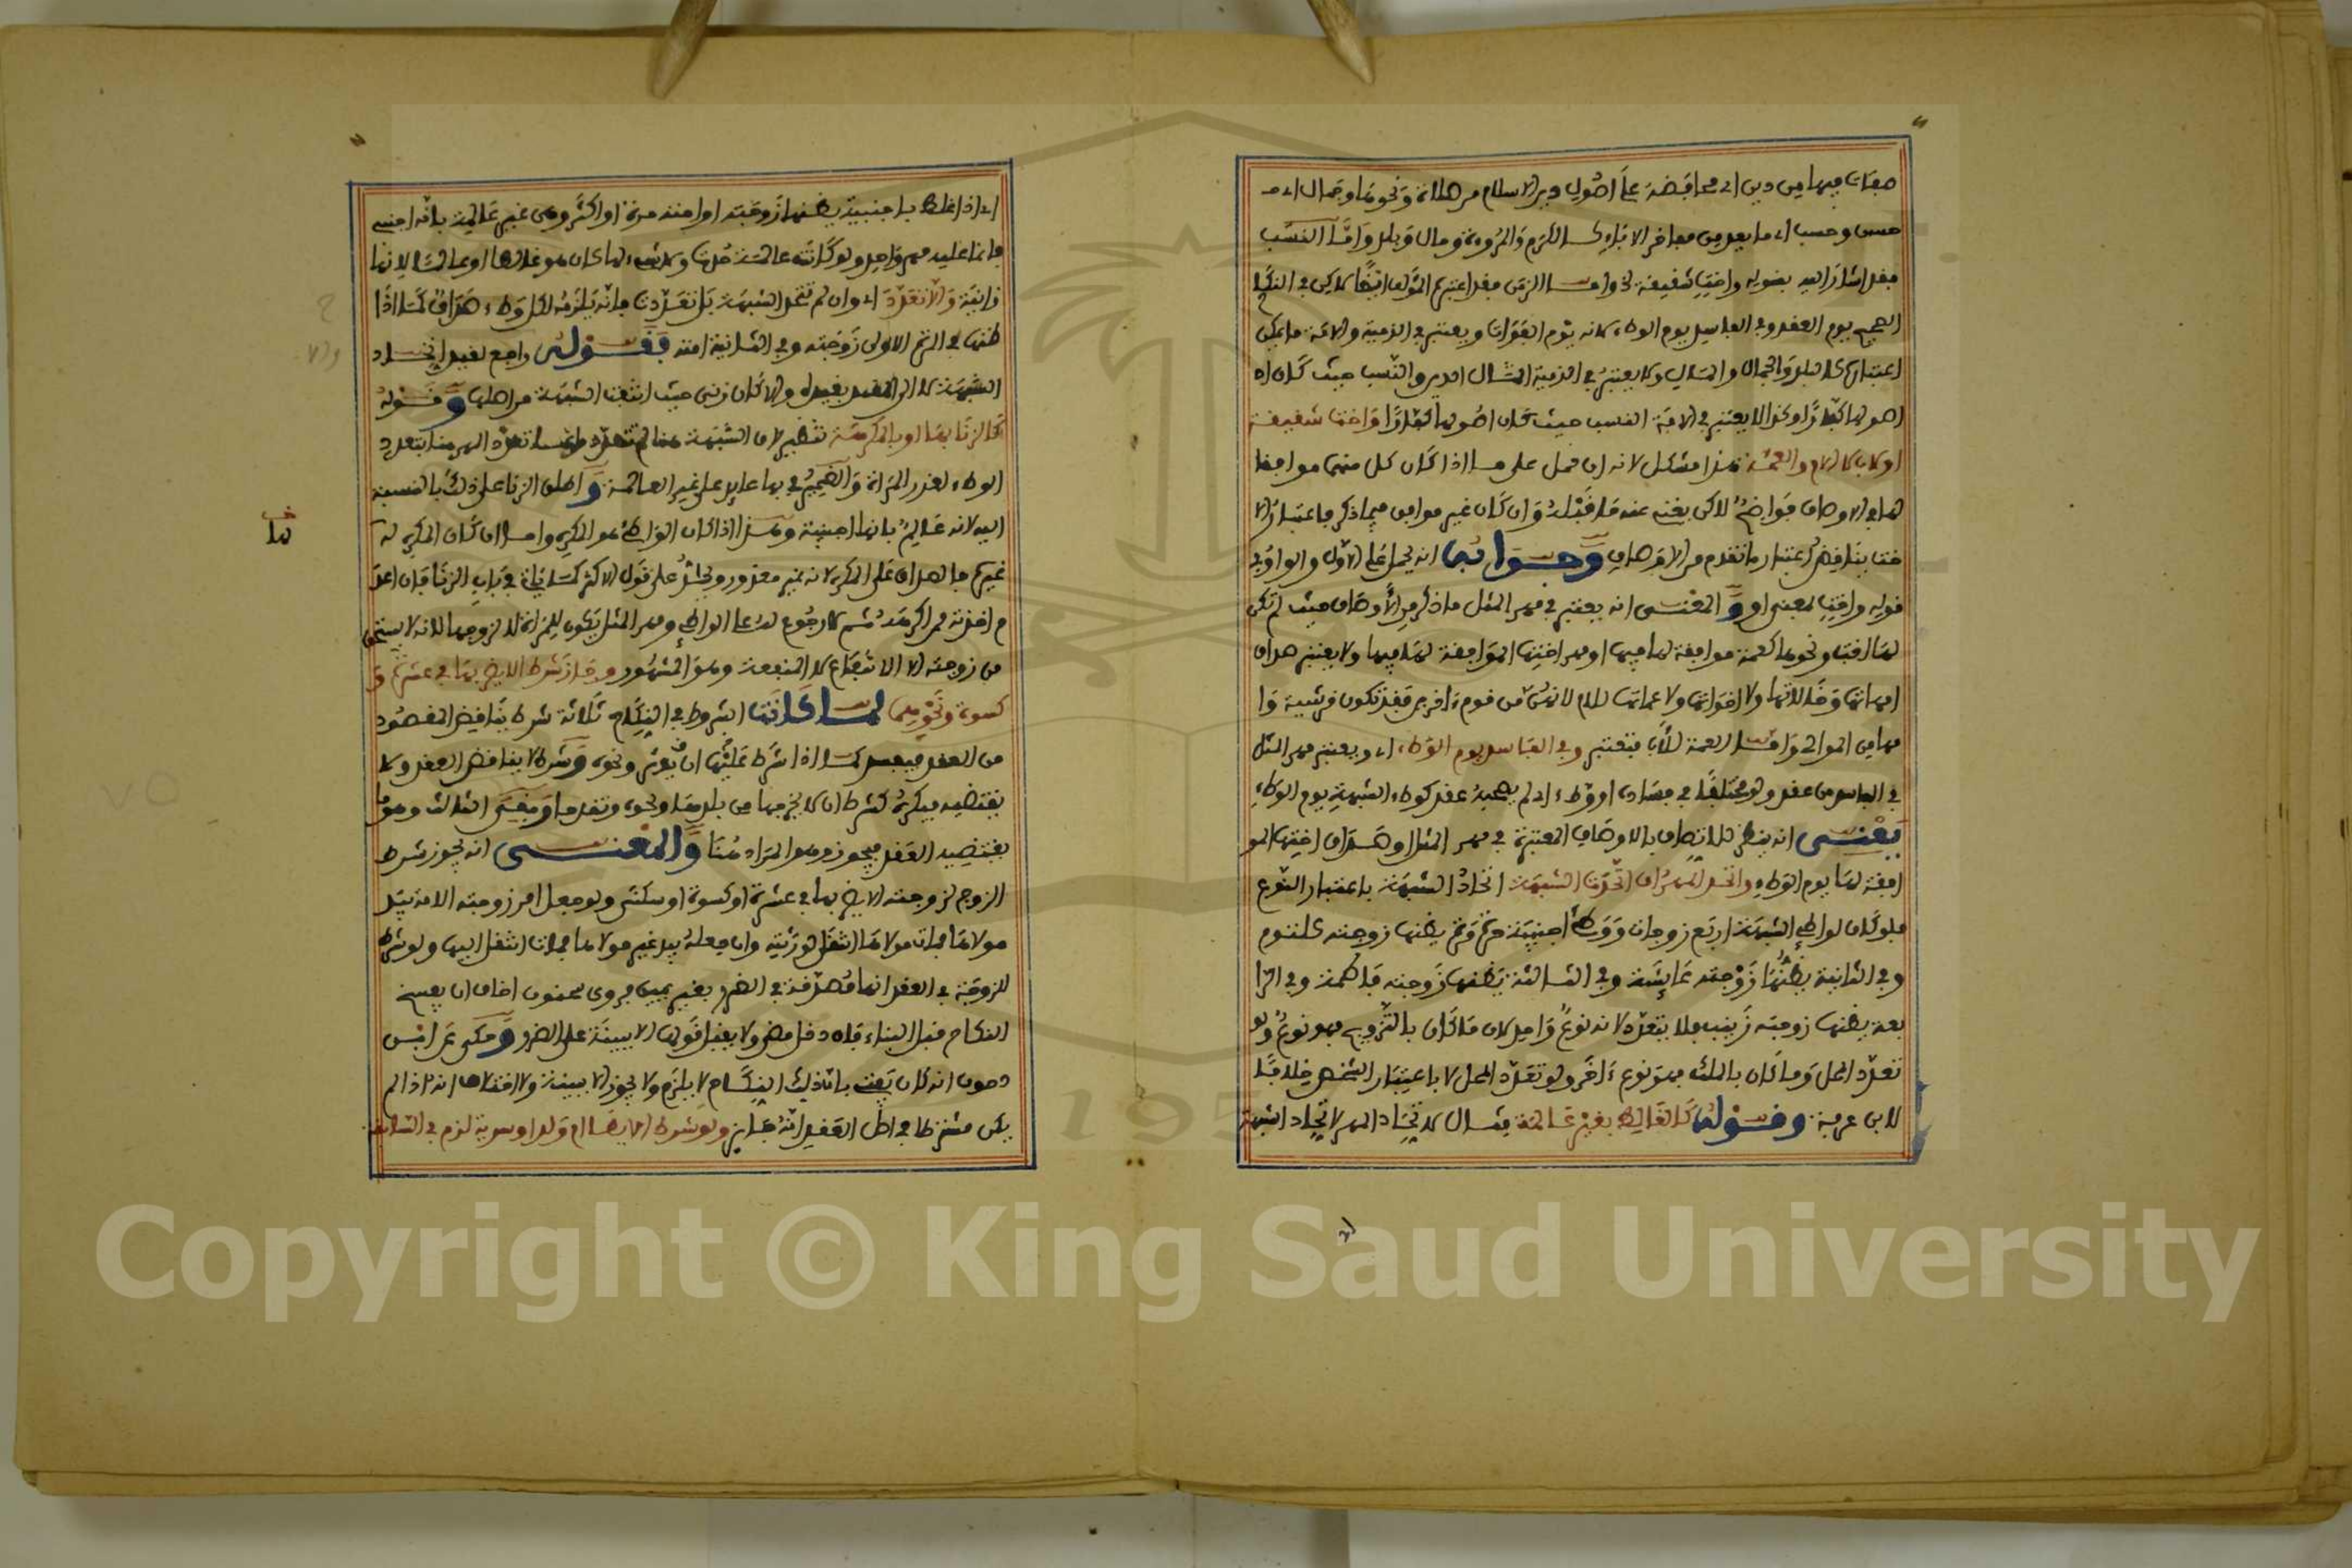 صفات فيهما من دين اي محافظة على اصول دين الاسلام من صلاة ونحوها وجمال اي
حسن وحسب اي ما يعد من مفاخر الاباء كالكرم والمروءة ومال وبلد واما النسب
فقد اشار اليه بقوله واخت شقيقة فقد اعتبره المؤلف ايضا لاكن في النكاح
الصحيح يوم العقد وفي الفاسد يوم الوطء لانه يوم الفوات ويعتبر في الذمية والامة ما يمكن
اعتباره كالبلد والجمال والمال ولا يعتبر في الذمية المال الدين والنسب حيث كان
اصولها كفارا وكذا لا يعتبر في الامة النسب حيث كان اصولها كفارا واخت شقيقة
او لاب لا الام والعمة هذا مشكل لانه ان حمل على ما اذا كان كل منهما موافقا
لها في الاوصاف فواضح لاكن يغني عنه ما قبله وان كان غير موافق فيما ذكر فاعتبار الا
خت يناقض اعتبار ما تقدم من الاوصاف وجوابه انه يحمل على الاول والواو في
قوله واخت بمعنى او والمعنى انه يعتبر في مهر المثل ما ذكر من الاوصاف حيث لم تكن
لها اخت ونحوها كعمة موافقة لها فيها او مهر اختها الموافقة لها فيها ولا يعتبر صداق
امهاتها وخالاتها ولا اخواتها ولا عماتها للام لانهن من قوم اخرين فقد تكون قرشية وا
مها من الموالي واما العمة للاب فتعتبر وفي الفاسد يوم الوطء اي ويعتبر مهر المثل
في الفاسد من عقد ولو مختلفا في فساده او وطء اي لم يصحبه عقد كوطء الشبهة يوم الوطء
يعني انه ينظر للاتصاف بالاوصاف المعتبرة في مهر المثل او صداق اختها المو
افقة لها يوم الوطء واتحد المهر ان اتحدت الشبهة اتحاد الشبهة باعتبار النوع
فلو كان لواطئ الشبهة اربع زوجات ووطئ اجنبية مرة يظنها زوجته كلثوم
وفي الثانية يظنها زوجته عايشة وفي الثالثة يظنها زوجته فاطمة وفي الرا
بعة يظنها زوجته زينب فلا يتعدد لانه نوع واحد لان ما كان بالتزويج فهو نوع ولو
تعدد المحل وما كان بالملك فهو نوع اخر ولو تعدد المحل لا باعتبار الشخص خلافا
لابن عرفة وقوله كالغالط بغير عالمة مثال لاتحاد المهر لاتحاد الشبهة
اي اذا غلط باجنبية يظنها زوجته او امته مرة او اكثر وهي غير عالمة بانه اجنبي
فانما عليه مهر واحد ولو كانت عالمة حدت ولا شيء لها كان هو غالطا او عالما لانها
زانية والا تعدد اي وان لم تتحد الشبهة بل تعددت فانه يلزمه لكل وطء صداق كما اذا
ظنها في المرة الاولى زوجته وفي الثانية امته فقوله راجع لقيد اتحاد
الشبهة لا الى المقيد بقيده والا كان زنى حيث انتفت الشبهة من اصلها وقوله
كالزنا بها او بالمكرهة تنظير لان الشبهة هنا لم تتعدد وانما تعدد المهر هنا بتعدد
الوطء لعذر المراة والضمير في بها عايد على غير العالمة واطلق الزنا على ذلك بالنسبة
اليه لانه عالم بانها اجنبية وهذا اذا كان الواطئ هو المكره واما ان كان المكره له
غيره فالصداق على المكره لانه غير معذور ويحد على قول الاكثر كما ياتي في باب الزنا فان اعد
م اخذته من اكرهه ثم لا رجوع له على الواطئ ومهر المثل يكون للمراة لا لزوجها لانه لا يستحق
من زوجته الا الانتفاع لا المنفعة وهو المشهور وجاز شرط الا يضر بها في عشرة و
كسوة ونحوهما لما كانت الشروط في النكاح ثلاثة شرط يناقض المقصود
من العقد فيفسد كما اذا شرط عليها ان يوثر ونحوه وشرط لا يناقض العقد ولا
يقتضيه فيكره كشرط ان لا يخرجها من بلدها ونحوه وتقدما وبقي الثالث وهو ما
يقتضيه العقد فيجوز وهو المراد هنا والمعنى انه يجوز شرط
الزوج لزوجته الا يضر بها في عشرة او كسوة او سكنى ولو جعل امر زوجته الامة بيد
مولاها فمات مولاها انتقل لورثته وان جعله بيد غير مولاها فمات انتقل اليها ولو شرط
للزوجة في العقد انها مصدقة في الضرر بغير يمين فروى سحنون اخاف ان يفسخ
النكاح قبل البناء فان دخل مضى ولا يقبل قولها الا ببينة على الضرر وحكى عن ابن
دحون انه كان يفتي بان ذلك النكاح لا يلزم ولا يجوز الا ببينة ولا اختلاف انه اذا لم
يكن مشترطا في اصل العقد انه جايز ولو شرط الا يطا ام ولد او سرية لزم في السابقة